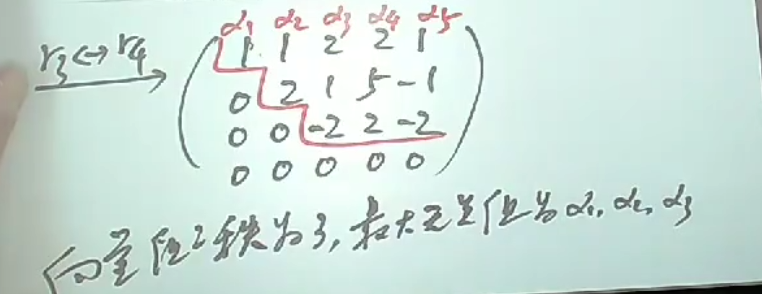 α₁ α₂ α₃ α₄ α₅
r₃↔r₄ 1 1 2 2 1
0 2 1 5 -1
0 0 -2 2 -2
0 0 0 0 0
向量组之秩为3, 最大无关组为α₁, α₂, α₃